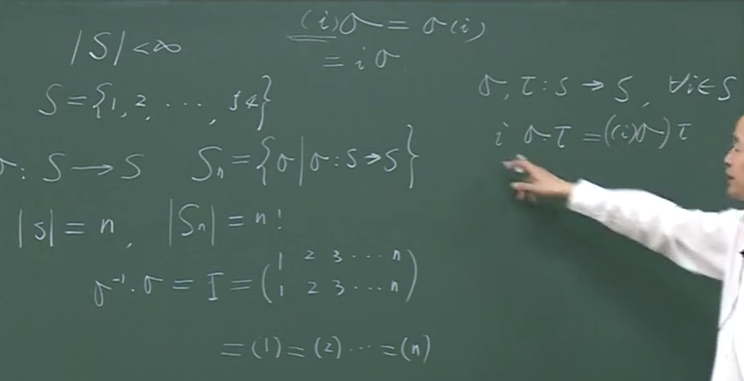 |S| < ∞
(i)σ = σ(i)
= iσ
S = {1, 2, ⋯, 54}
σ: S → S   Sₙ = {σ | σ: S → S}
|S| = n,   |Sₙ| = n!
σ⁻¹·σ = I = (1 2 3 ⋯ n
1 2 3 ⋯ n)
= (1) = (2) ⋯ = (n)
σ, τ: S → S, ∀i ∈ S
i σ·τ = ((i)σ)τ